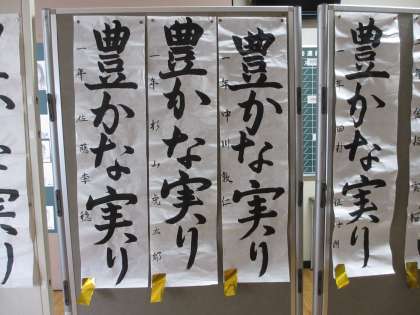 豊かな実り
一年 田村
豊かな実り
一年 中川敦仁
豊かな実り
一年 杉山亮太郎
豊かな実り
一年 佐藤李穏